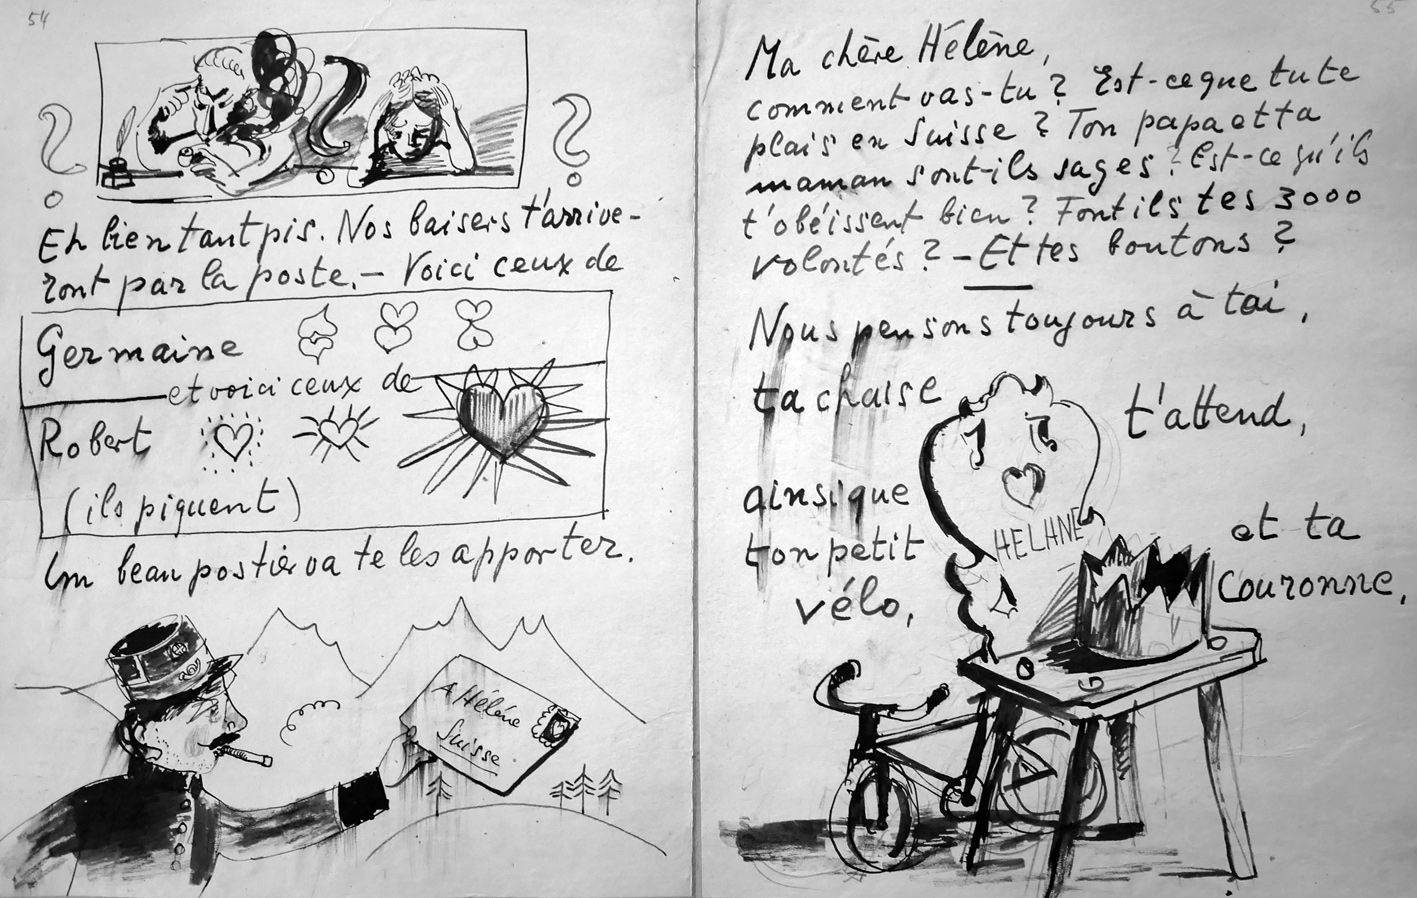 54
Eh bien tant pis. Nos baisers t'arrive-
ront par la poste. – Voici ceux de
Germaine
et voici ceux de
Robert
(ils piquent)
Un beau postier va te les apporter.
A Hélène
Suisse
55
Ma chère Hélène,
comment vas-tu ? Est-ce que tu te
plais en Suisse ? Ton papa et ta
maman sont-ils sages ? Est-ce qu'ils
t'obéissent bien ? Font ils tes 3000
volontés ? – Et tes boutons ?
Nous pensons toujours à toi,
ta chaise
t'attend,
ainsi que
ton petit
vélo,
HELHNE
et ta
couronne,